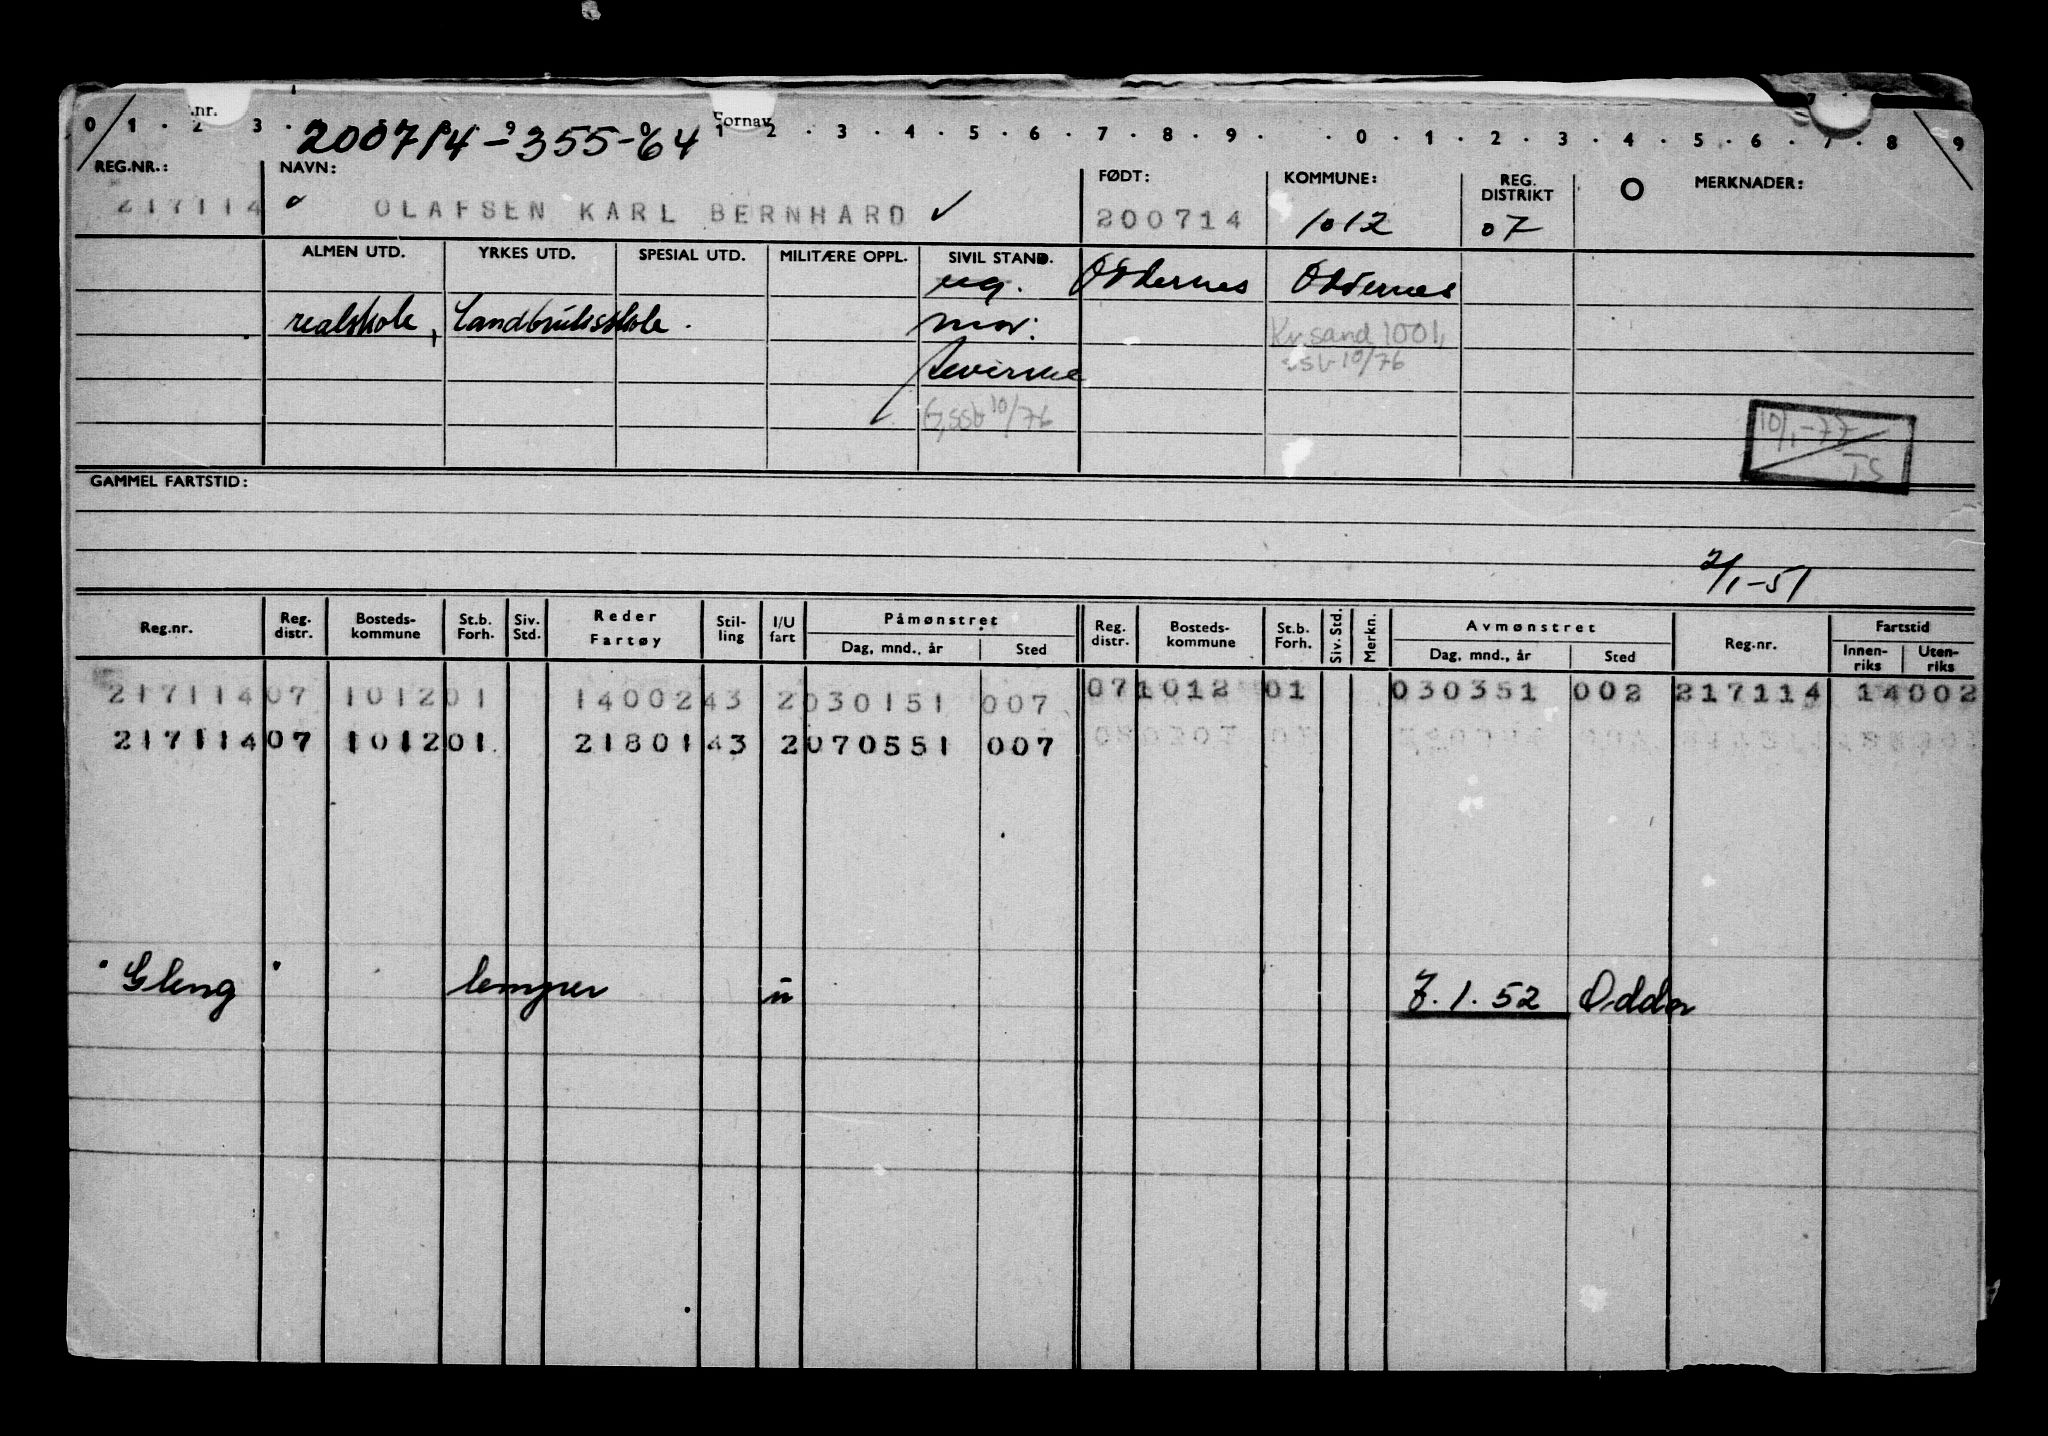 .nr. Fornav
0 1 2 3 9 0 1 2 3 4 5 6 7 8 9 0 1 2 3 4 5 6 7 8 9
200714-355-64
REG.NR.: NAVN: FØDT: KOMMUNE: REG. DISTRIKT MERKNADER:
217114 OLAFSEN KARL BERNHARD ✓ 200714 1012 07
ALMEN UTD. YRKES UTD. SPESIAL UTD. MILITÆRE OPPL. SIVIL STAND.
ug. Oddernes Oddernes
realskole, Landbruksskole. mor: Kr.sand 1001,
ssb 10/76
G, ssb 10/76
10/1-77
TS
GAMMEL FARTSTID:
2/1-51
Reg.nr. Reg. distr. Bosteds-kommune St.b. Forh. Siv. Std. Reder Fartøy Stil-ling I/U fart Påmønstret Reg. distr. Bosteds-kommune St.b. Forh. Siv. Std. Merkn. Avmønstret Reg.nr. Fartstid
Dag, mnd., år Sted Dag, mnd., år Sted Innen-riks Uten-riks
217114 07 1012 01 14002 43 2 030151 007 07 1012 01 030351 002 217114 14002
217114 07 1012 01 21801 43 2 070551 007
"Gleng" lemper u 7.1.52 Odda